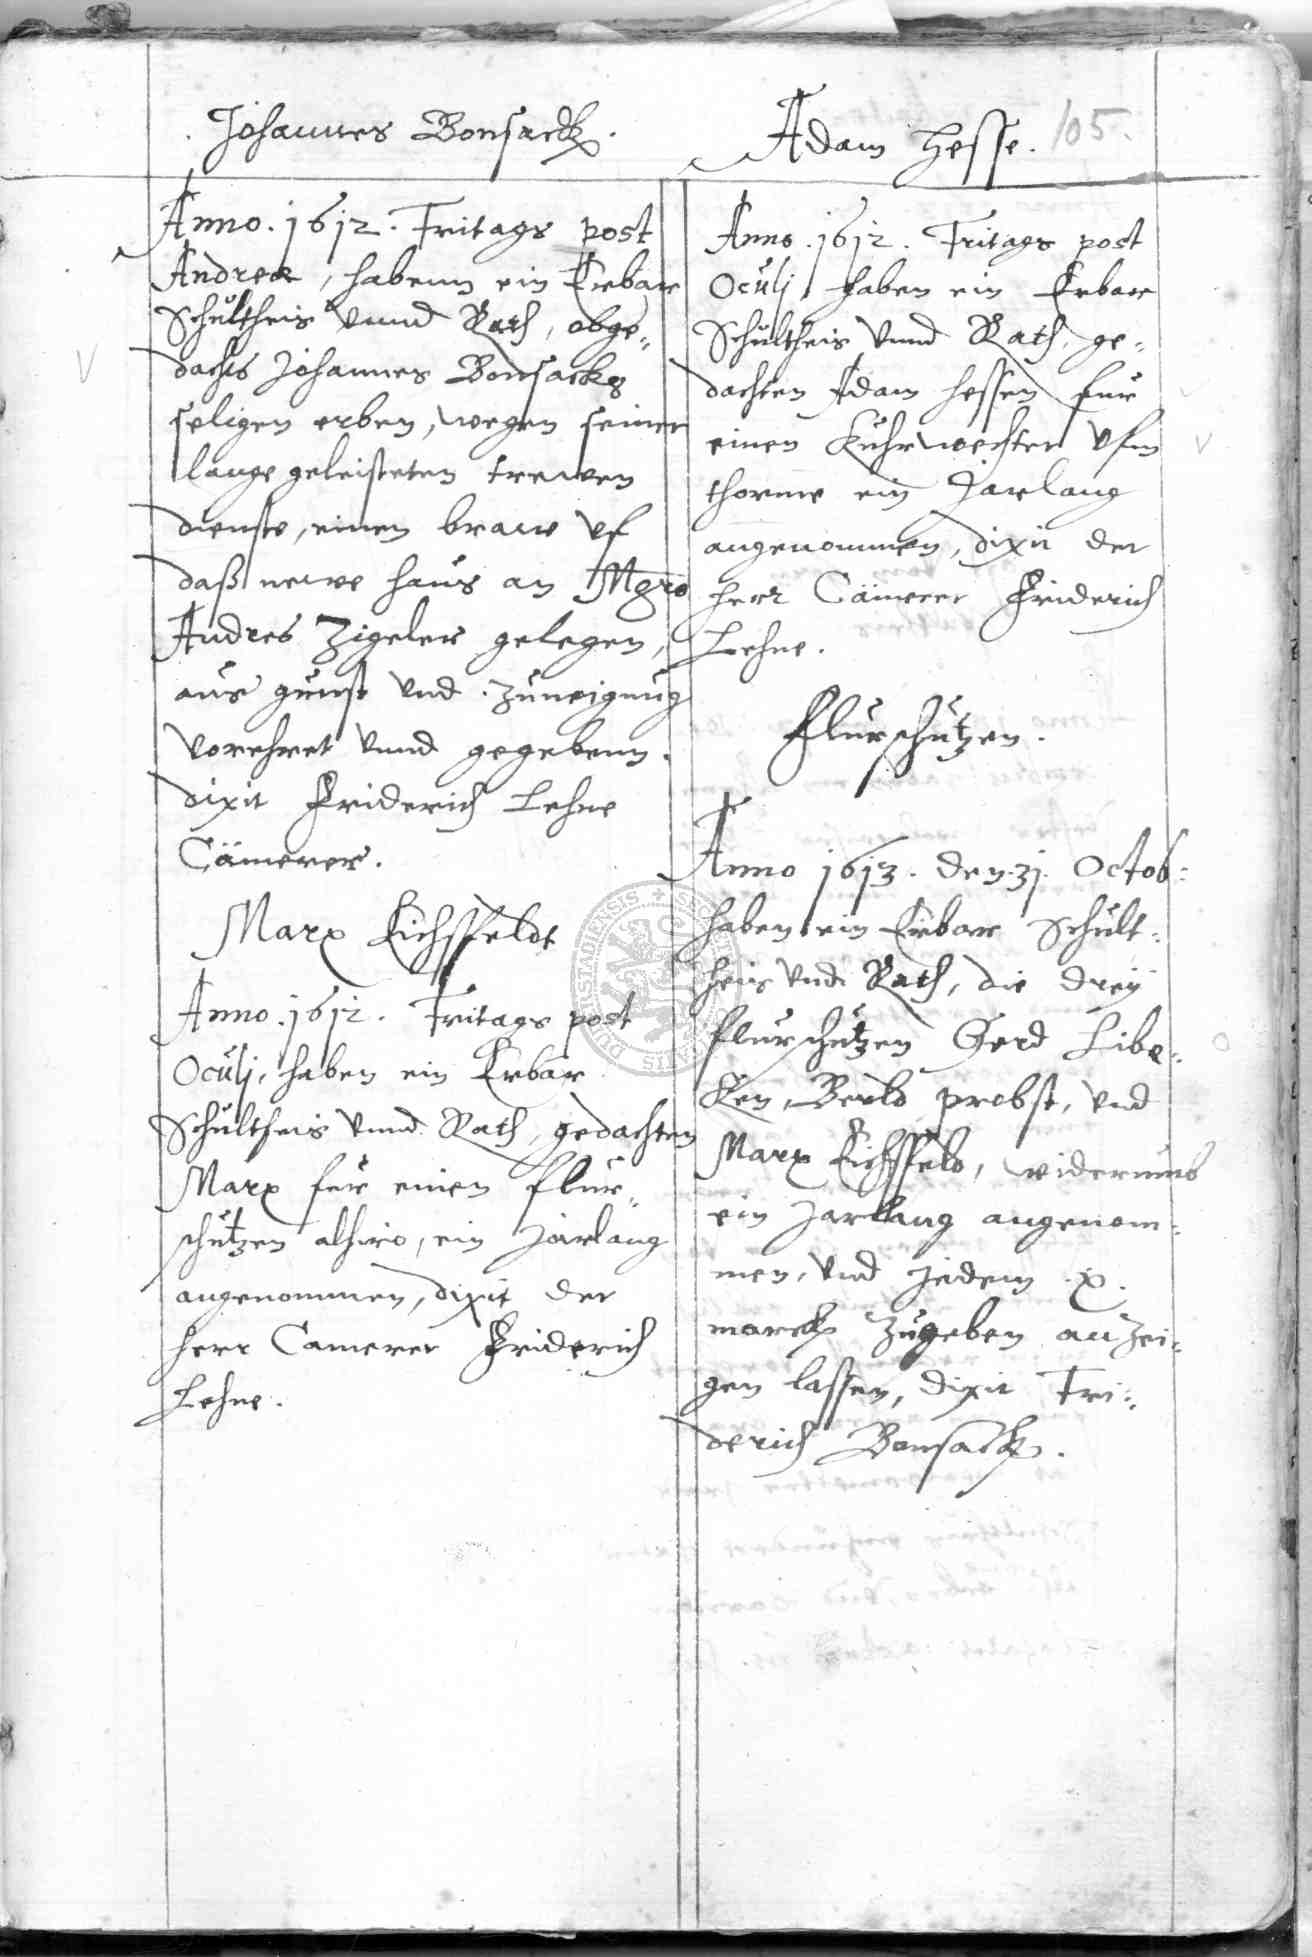 Johannes Bonsack.
Anno. 1612. Fritags post
Andreæ, habenn ein Erbar
Schultheis vnnd Rath, obge„
dachts Johannes Bonsacks
seligen erben, wegen seiner
lange geleisteten trewen
dienste, einen braw vf
daß newe haus an Mgro
Andres Zigeler gelegen,
aus gunst vnd zuneigung
vorehret vnnd gegebenn.
dixit Friderich Lehne
Cämerer.
Marx Eichsfeldt
Anno. 1612. Fritags post
Oculj, haben ein Erbar
Schultheis vnnd Rath, gedachten
Marx für einen flur„
schützen alhiro, ein Jarlang
angenommen, dixit der
herr Camerer Friderich
Lehne.
Adam Hesse. 105.
Anno. 1612. Fritags post
Oculj haben ein Erbar
Schultheis vnnd Rath, ge„
dachten Adam Hessen fur
einen Kuhrwechter vfm
thorme ein Jarlang
angenommen, dixit der
herr Cämerer Friderich
Lehne.
Flurschützen.
Anno 1613. den. 31. Octob:
haben ein Erbar Schult„
heis vnd Rath, die dreÿ
flurschützen Gerd Libe„
ken, probst, vnd
Marx Eichsfeld, widerumb
ein Jarlang angenom„
men, vnd Jedem .x.
marck zugeben anzei„
gen lassen, dixit Fri„
derich Bonsack.